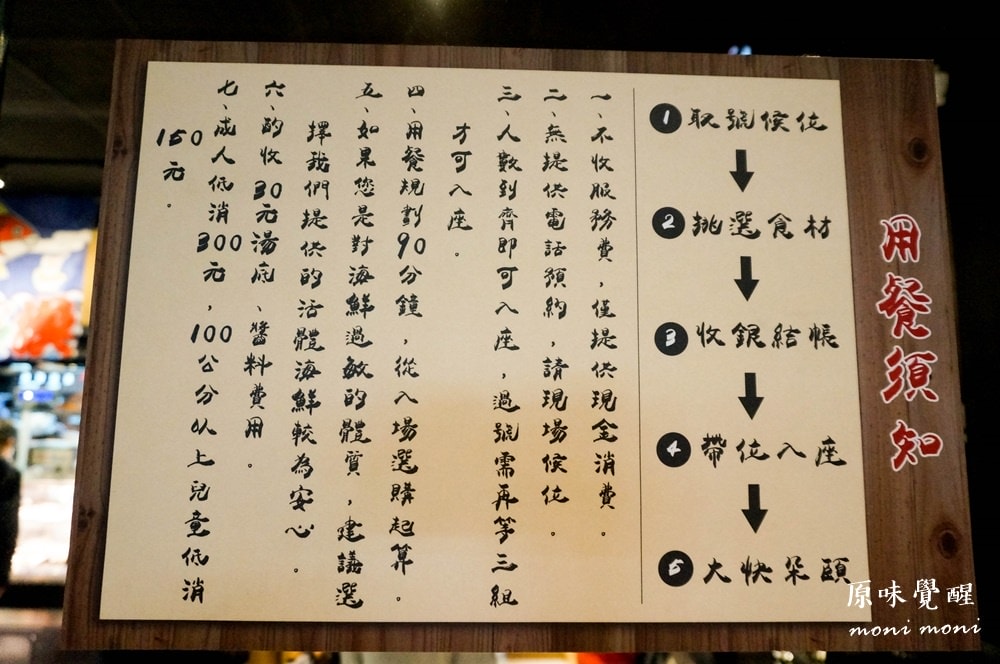 用餐須知
1 取號候位
2 挑選食材
3 收銀結帳
4 帶位入座
5 大快朵頤
一、不收服務費，僅提供現金消費。
二、無提供電話預約，請現場候位。
三、人數到齊即可入座，過號需再等三組
才可入座。
四、用餐規劃90分鐘，從入場選購起算。
五、如果您是對海鮮過敏的體質，建議選
擇我們提供的活體海鮮較為安心。
六、酌收30元湯底、醬料費用。
七、成人低消300元，100公分以上兒童低消
150元。
原味覺醒
moni moni